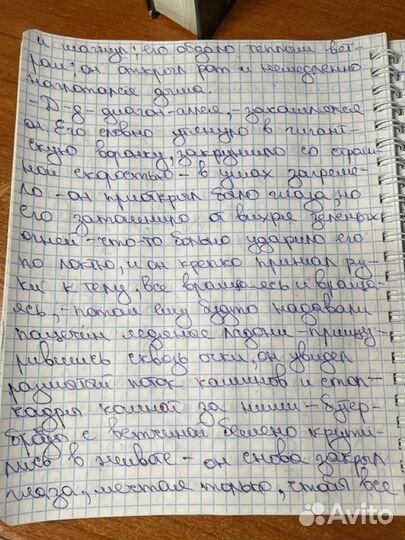 и шагнул; его обдало теплым вет-
ром; он открыл рот и немедленно
наглотался дыма.
- Д-д-диагон-аллея, - закашлялся
он. Его словно утянуло в гигант-
скую воронку, закружило со страш-
ной скоростью - в ушах загреме-
ло - он приоткрыл было глаза, но
его затошнило от вихря зеленых
огней - что-то больно ударило его
по локтю, и он крепко прижал ру-
ки к телу, все вращаясь и враща-
ясь, - потом ему будто надавали
пощечин ледяные ладони - прищу-
рившись сквозь очки, он увидел
размытый поток каминов и стоп-
кадры комнат за ними - бутер-
броды с ветчиной бешено крути-
лись в животе - он снова закрыл
глаза, мечтая только, чтобы все
Avito